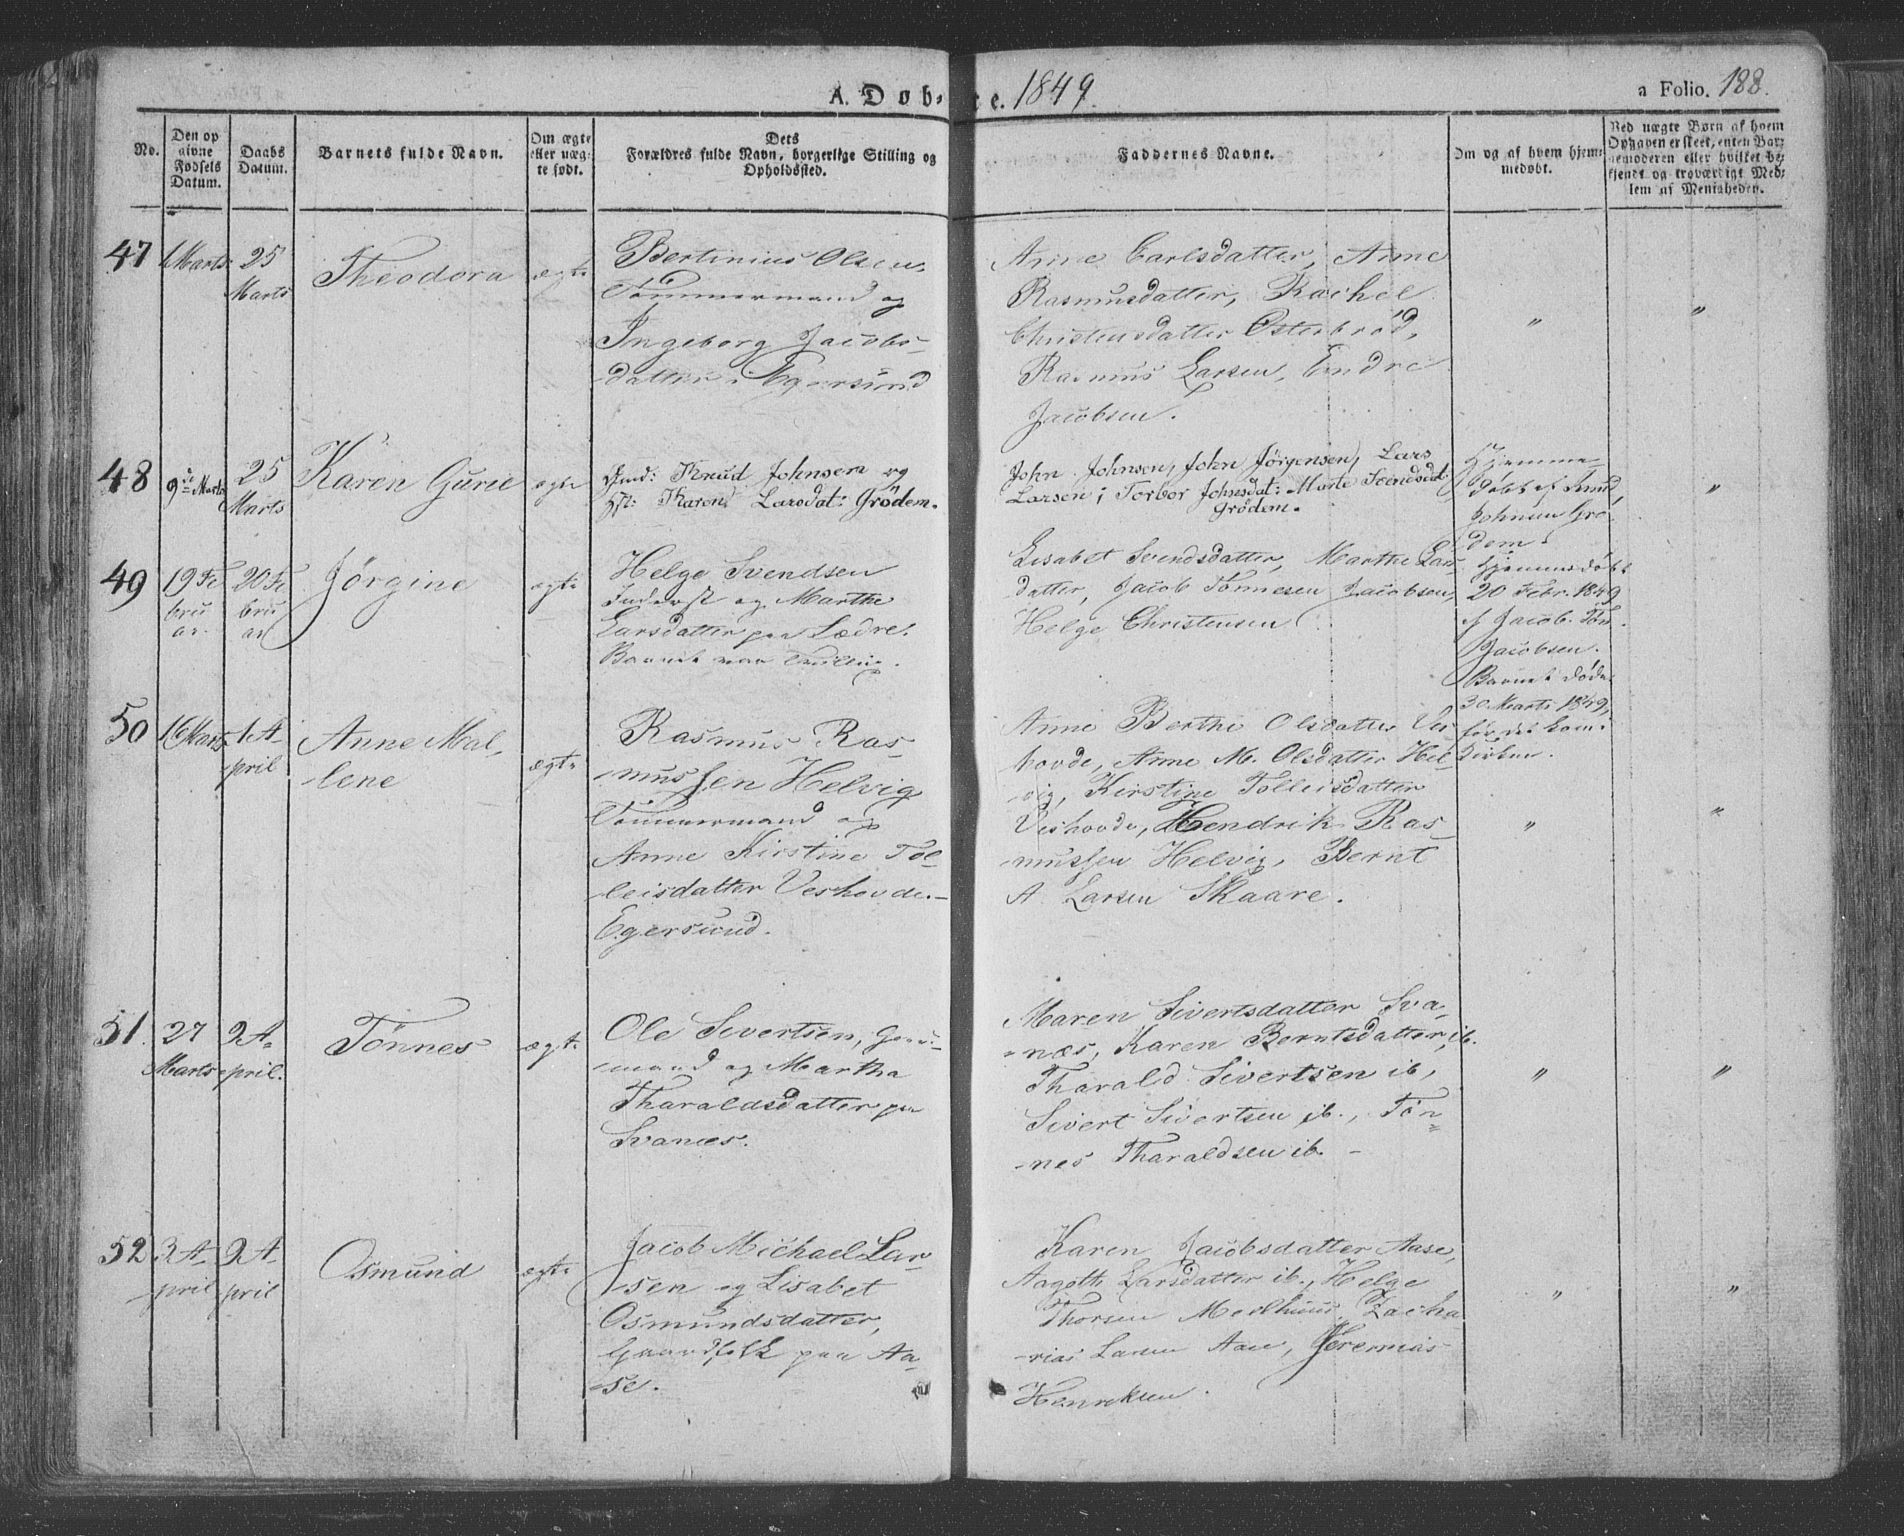 A. Døb- te. 1849.
a Folio. 188.
No.
Den op
givne
Fødsels
Datum.
Daabs
Datum.
Barnets fulde Navn.
Om ægte
eller uæg-
te født.
Dets
Forældres fulde Navn, borgerlige Stilling og
Opholdssted.
Faddernes Navne.
Om og af hvem hjem-
medøbt.
Ved uægte Børn af hvem
Opgaven er skeet, enten Bar-
nemoderen eller hvilket be-
kjendt og troværdigt Med-
lem af Menigheden.
47
1 Marts
25
Marts
Theodora
ægte
Bertinius Olsen,
Tømmermand og
Ingeborg Jacobs-
datter i Egersund
Anne Carlsdatter, Anne
Rasmusdatter, Rachel
Christensdatter Østerbrød,
Rasmus Larsen, Endre
Jacobsen.
"
"
48
9de Marts
25
Marts
Karen Gurie
ægte
Gmd: Knud Johnsen og
Hst: Karen Larsdat: Grødem.
John Johnsen, John Jørgensen, Lars
Larsen; Torbor Johnsdat: Marte Svendsdat:
Grødem.
Hjemme
døbt af Knud
Johnsen Grø
dem.
"
49
19 Fe
bru
ar.
20 Fe
bru
ar
Jørgine
ægte
Helge Svendsen
Inderst og Marthe
Larsdatter paa Lædre.
Barnet var Tvilling.
Lisabet Svendsdatter, Marthe Lars
datter, Jacob Tønnesen Jacobsen,
Helge Christensen
Hjemmedøbt
20 Febr. 1849
af Jacob Tøn.
Jacobsen.
Barnet døde
30 Marts 1849,
før det kom i
Kirken.
50
16 Marts
1 A-
pril
Anne Mal-
lene
ægte
Rasmus Ras-
mussen Helvig
Tømmermand og
Anne Kirstine Tol-
leisdatter Veshovde.-
Egersund.
Anne Berthe Olsdatter Ves
hovde, Anne M. Olsdatter Hel-
vig, Kirstine Tolleisdatter
Veshovde, Hendrik Ras-
mussen Helvig, Bernt
A. Larsen Skaare.
"
"
51.
27
Marts
9 A-
pril.
Tønnes
ægte
Ole Sivertsen, Gaard-
mand og Martha
Tharaldsdatter paa
Svanæs.
Maren Sivertsdatter Sva-
næs, Karen Berntsdatter, ib.
Tharald Sivertsen ib,
Sivert Sivertsen ib., Tøn-
nes Tharaldsen ib. -
"
"
52
3 A-
pril
9 A-
pril
Osmund
ægte
Jacob Michael Lar
sen og Lisabet
Osmundsdatter,
Gaardfolk paa Aa-
se.
Karen Jacobsdatter Aase,
Aagoth Larsdatter ib., Helge
Thorsen Medhuus, Zacha
rias Larsen Aase, Jeremias
Henriksen.
"
"